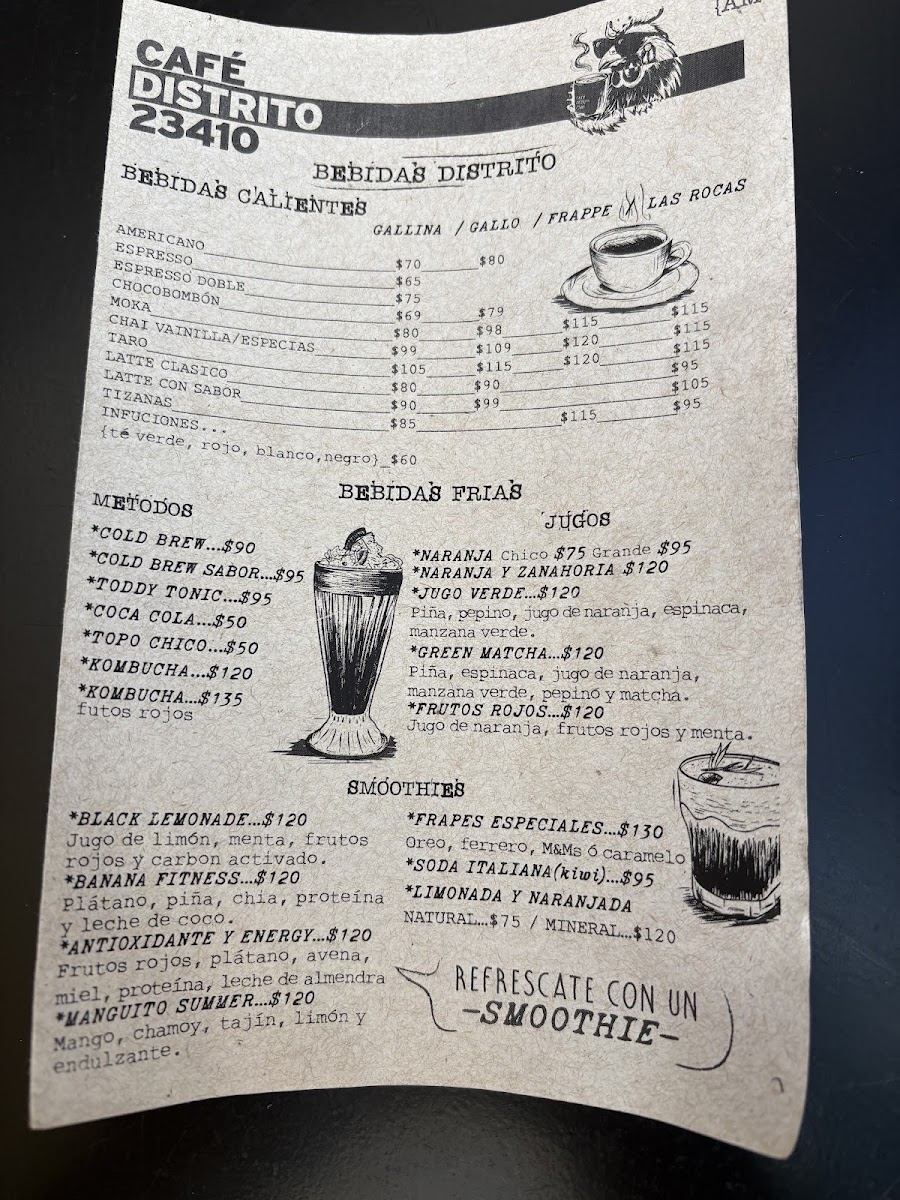 {AM
CAFÉ
DISTRITO
23410
BEBIDAS DISTRITO
BEBIDAS CALIENTES
GALLINA / GALLO / FRAPPE / LAS ROCAS
AMERICANO $70 $80
ESPRESSO $65
ESPRESSO DOBLE $75
CHOCOBOMBÓN $69 $79
MOKA $80 $98 $115 $115
CHAI VAINILLA/ESPECIAS $99 $109 $120 $115
TARO $105 $115 $120 $115
LATTE CLASICO $80 $90 $95
LATTE CON SABOR $90 $99 $105
TIZANAS $85 $115 $95
INFUCIONES...
{té verde, rojo, blanco,negro}_$60
BEBIDAS FRIAS
METODOS
*COLD BREW...$90
*COLD BREW SABOR...$95
*TODDY TONIC...$95
*COCA COLA...$50
*TOPO CHICO...$50
*KOMBUCHA...$120
*KOMBUCHA...$135
futos rojos
JUGOS
*NARANJA Chico $75 Grande $95
*NARANJA Y ZANAHORIA $120
*JUGO VERDE...$120
Piña, pepino, jugo de naranja, espinaca,
manzana verde.
*GREEN MATCHA...$120
Piña, espinaca, jugo de naranja,
manzana verde, pepino y matcha.
*FRUTOS ROJOS...$120
Jugo de naranja, frutos rojos y menta.
SMOOTHIES
*BLACK LEMONADE...$120
Jugo de limón, menta, frutos
rojos y carbon activado.
*BANANA FITNESS...$120
Plátano, piña, chia, proteína
y leche de coco.
*ANTIOXIDANTE Y ENERGY...$120
Frutos rojos, plátano, avena,
miel, proteína, leche de almendra
*MANGUITO SUMMER...$120
Mango, chamoy, tajín, limón y
endulzante.
*FRAPES ESPECIALES...$130
Oreo, ferrero, M&Ms ó caramelo
*SODA ITALIANA(kiwi)...$95
*LIMONADA Y NARANJADA
NATURAL...$75 / MINERAL...$120
REFRESCATE CON UN
-SMOOTHIE-